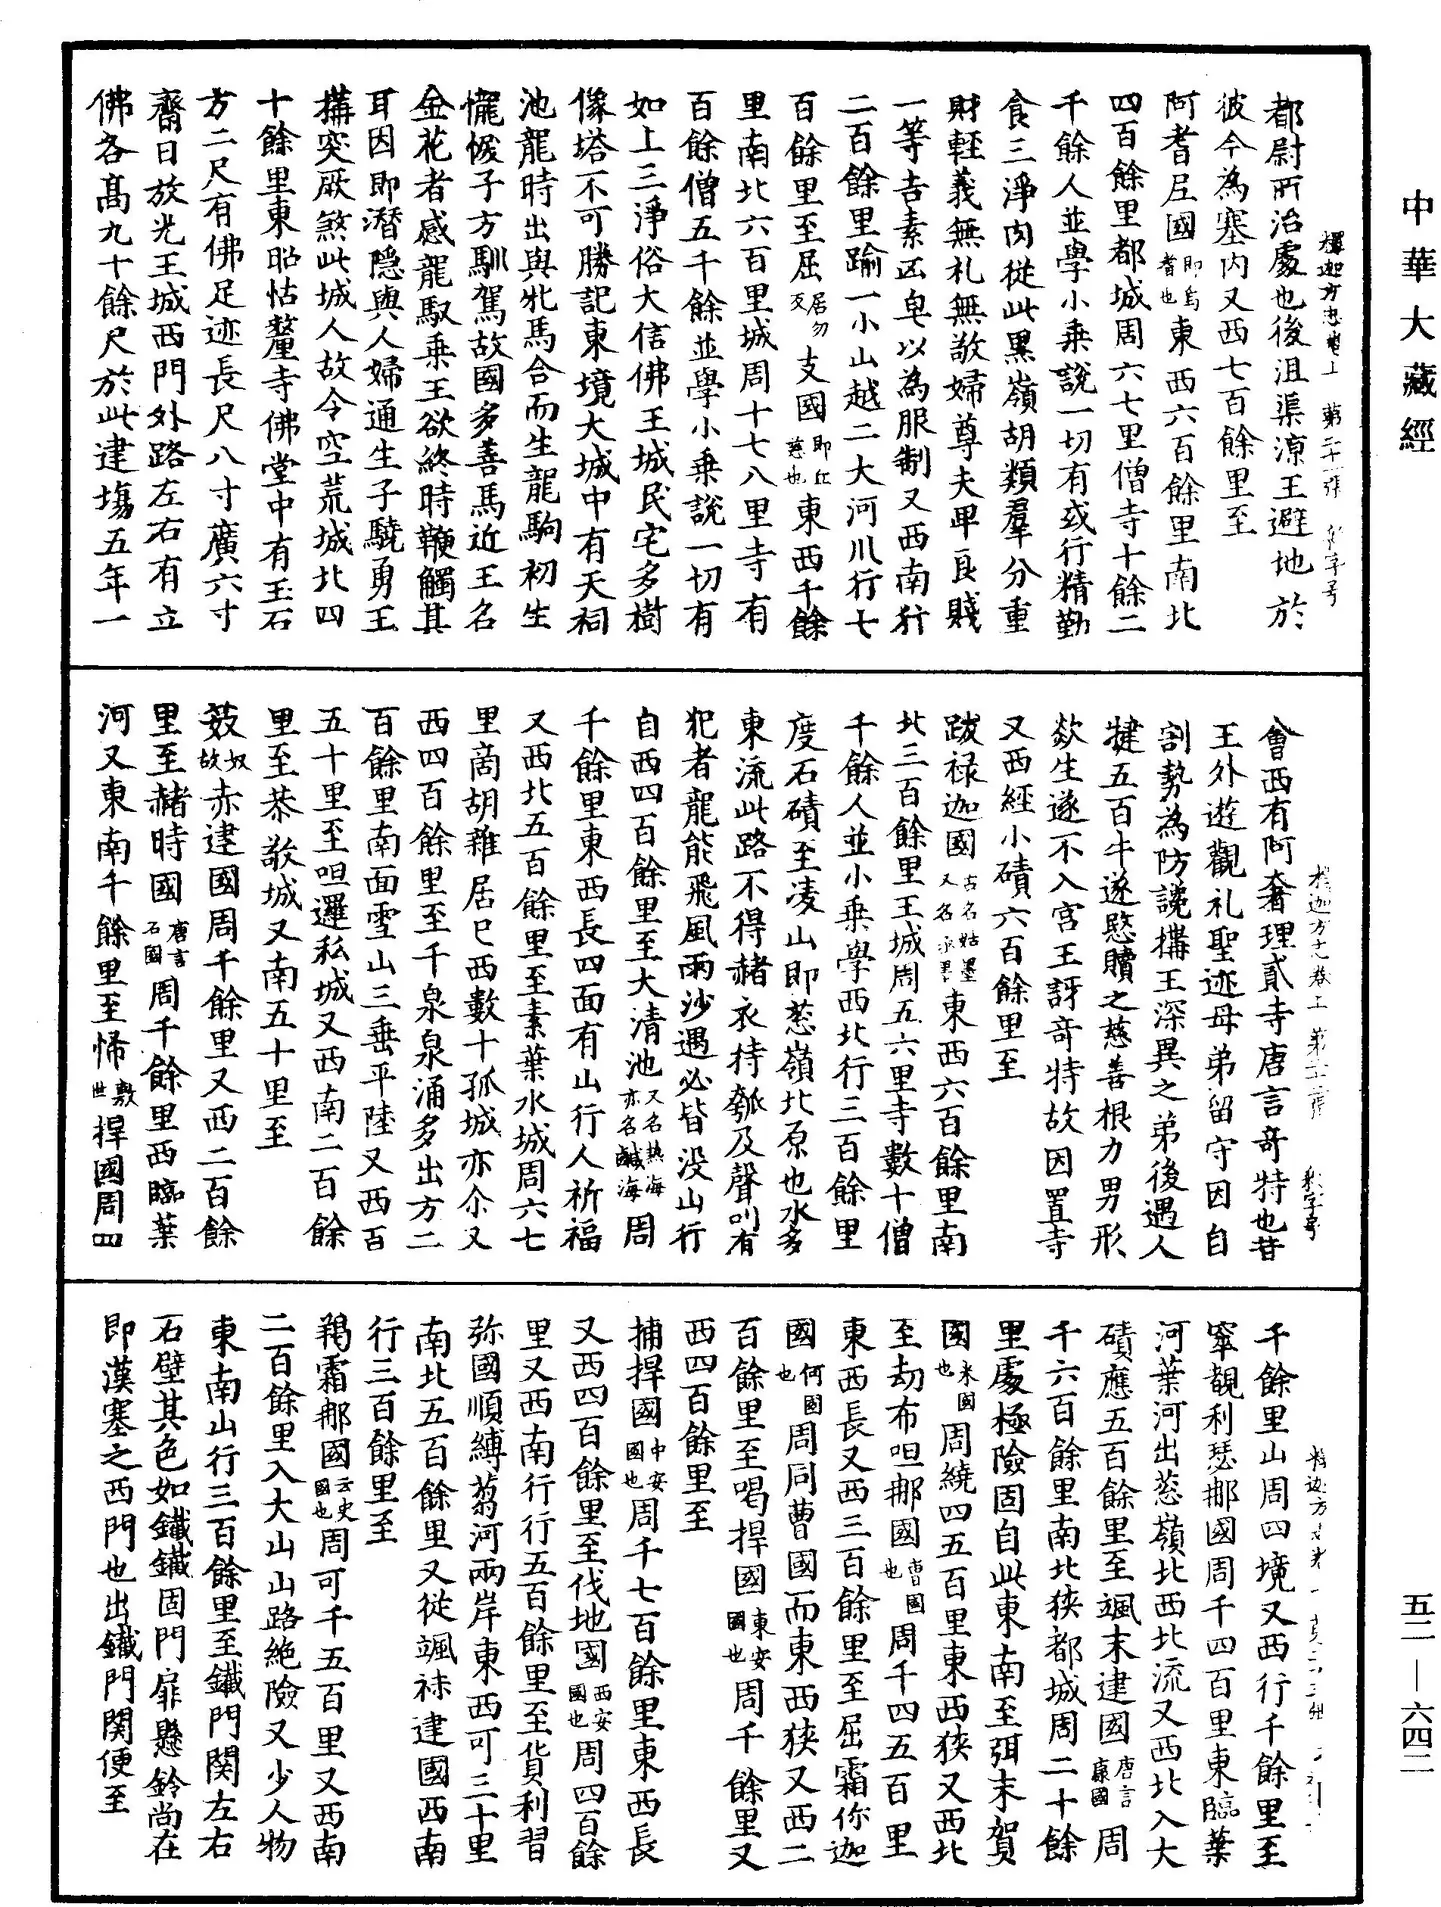 中華大藏經
釋迦方志卷上 第二十一張
都尉所治處也後沮渠涼王避地於
彼今為塞內又西七百餘里至
阿耆尼國即烏耆也東西六百餘里南北
四百餘里都城周六七里僧寺十餘二
千餘人並學小乘說一切有或行精勤
食三淨肉從此黑嶺胡類羣分重
財輕義無礼無敬婦尊夫卑良賤
一等吉素凶皂以為服制又西南行
二百餘里踰一小山越二大河川行七
百餘里至屈居勿反支國即丘慈也東西千餘
里南北六百里城周十七八里寺有
百餘僧五千餘並學小乘說一切有
如上三淨俗大信佛王城民宅多樹
像塔不可勝記東境大城中有天祠
池龍時出與牝馬合而生龍駒初生
㦬悷子方馴駕故國多善馬近王名
金花者感龍馭乘王欲終時鞭觸其
耳因即潛隱與人婦通生子驍勇王
搆突厥煞此城人故今空荒城北四
十餘里東昭怙釐寺佛堂中有玉石
方二尺有佛足迹長尺八寸廣六寸
齋日放光王城西門外路左右有立
佛各高九十餘尺於此建塲五年一
釋迦方志卷上
會西有阿奢理貳寺唐言奇特也昔
王外遊觀礼聖迹母弟留守因自
割勢為防讒搆王深異之弟後遇人
揵五百牛遂愍贖之慈善根力男形
欻生遂不入宮王訝奇特故因置寺
又西經小磧六百餘里至
跋祿迦國古名姑墨又名亟墨東西六百餘里南
北三百餘里王城周五六里寺數十僧
千餘人並小乘學西北行三百餘里
度石磧至凌山即葱嶺北原也水多
東流此路不得赭衣持瓠及聲叫有
犯者龍能飛風雨沙遇必皆没山行
自西四百餘里至大清池又名熱海亦名鹹海周
千餘里東西長四面有山行人祈福
又西北五百餘里至素葉水城周六七
里商胡雜居已西數十孤城亦尒又
西四百餘里至千泉泉涌多出方二
百餘里南面雪山三垂平陸又西百
五十里至呾邏私城又西南二百餘
里至恭敬城又南五十里至
笯奴故赤建國周千餘里又西二百餘
里至赭時國唐言石國周千餘里西臨葉
河又東南千餘里至㤄敷世捍國周四
千餘里山周四境又西行千餘里至
窣覩利瑟那國周千四百里東臨葉
河葉河出葱嶺北西北流又西北入大
磧應五百餘里至颯末建國唐言康國周
千六百餘里南北狹都城周二十餘
里處極險固自此東南至弭末賀
國米國也周繞四五百里東西狹又西北
至劫布呾那國曹國也周千四五百里
東西長又西三百餘里至屈霜你迦
國何國也周同曹國而東西狹又西二
百餘里至喝捍國東安國也周千餘里又
西四百餘里至
捕捍國中安國也周千七百餘里東西長
又西四百餘里至伐地國西安國也周四百餘
里又西南行行五百餘里至貨利習
弥國順縛芻河兩岸東西可三十里
南北五百餘里又從颯秣建國西南
行三百餘里至
羯霜那國云史國也周可千五百里又西南
二百餘里入大山山路絶險又少人物
東南山行三百餘里至鐵門関左右
石壁其色如鐵鐵固門扉懸鈴尚在
即漢塞之西門也出鐵門関便至
五二—六四二